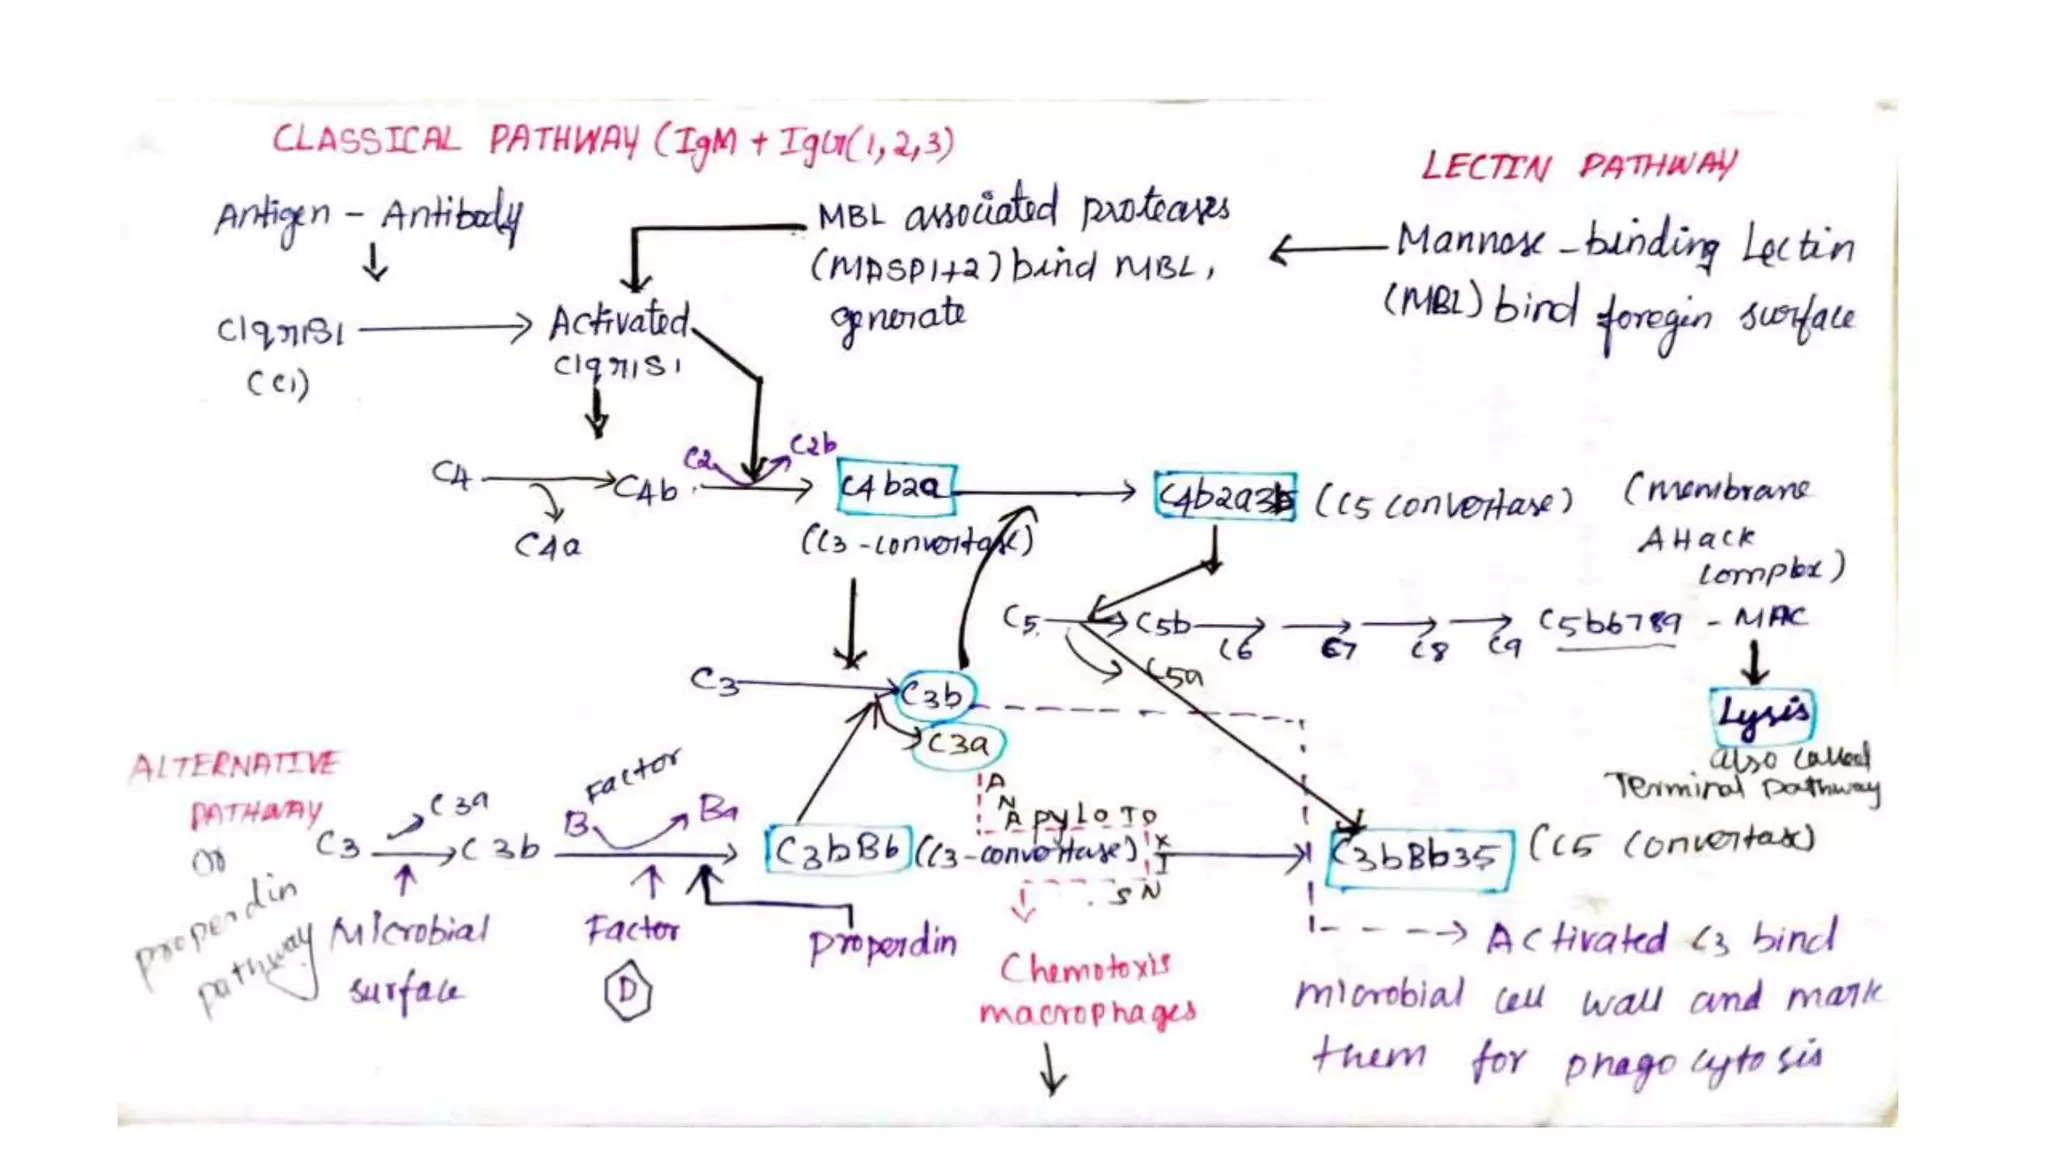 CLASSICAL PATHWAY (IgM + IgG(1,2,3)
LECTIN PATHWAY
Antigen - Antibody
MBL associated proteases
(MASP1+2) bind MBL,
generate
Mannose-binding Lectin
(MBL) bind foregin surface
C1qr1S1
(C1)
Activated
C1qr1S1
C4
C4a
C4b
C2
C2b
C4b2a
(C3-convertase)
C4b2a3b (C5 convertase)
(membrane
Attack
complex)
C5
C5b
C6
C7
C8
C9
C5b6789 - MAC
C5a
Lysis
also called
Terminal pathway
C3
C3b
C3a
ANAPYLOTOXINS
ALTERNATIVE
PATHWAY
or
properdin
pathway
C3
C3a
C3b
Factor
B
Ba
C3bBb (C3-convertase)
C3bBb35 (C5 convertase)
Microbial
surface
Factor
D
Properdin
Chemotoxis
macrophages
Activated C3 bind
microbial cell wall and mark
them for phagocytosis